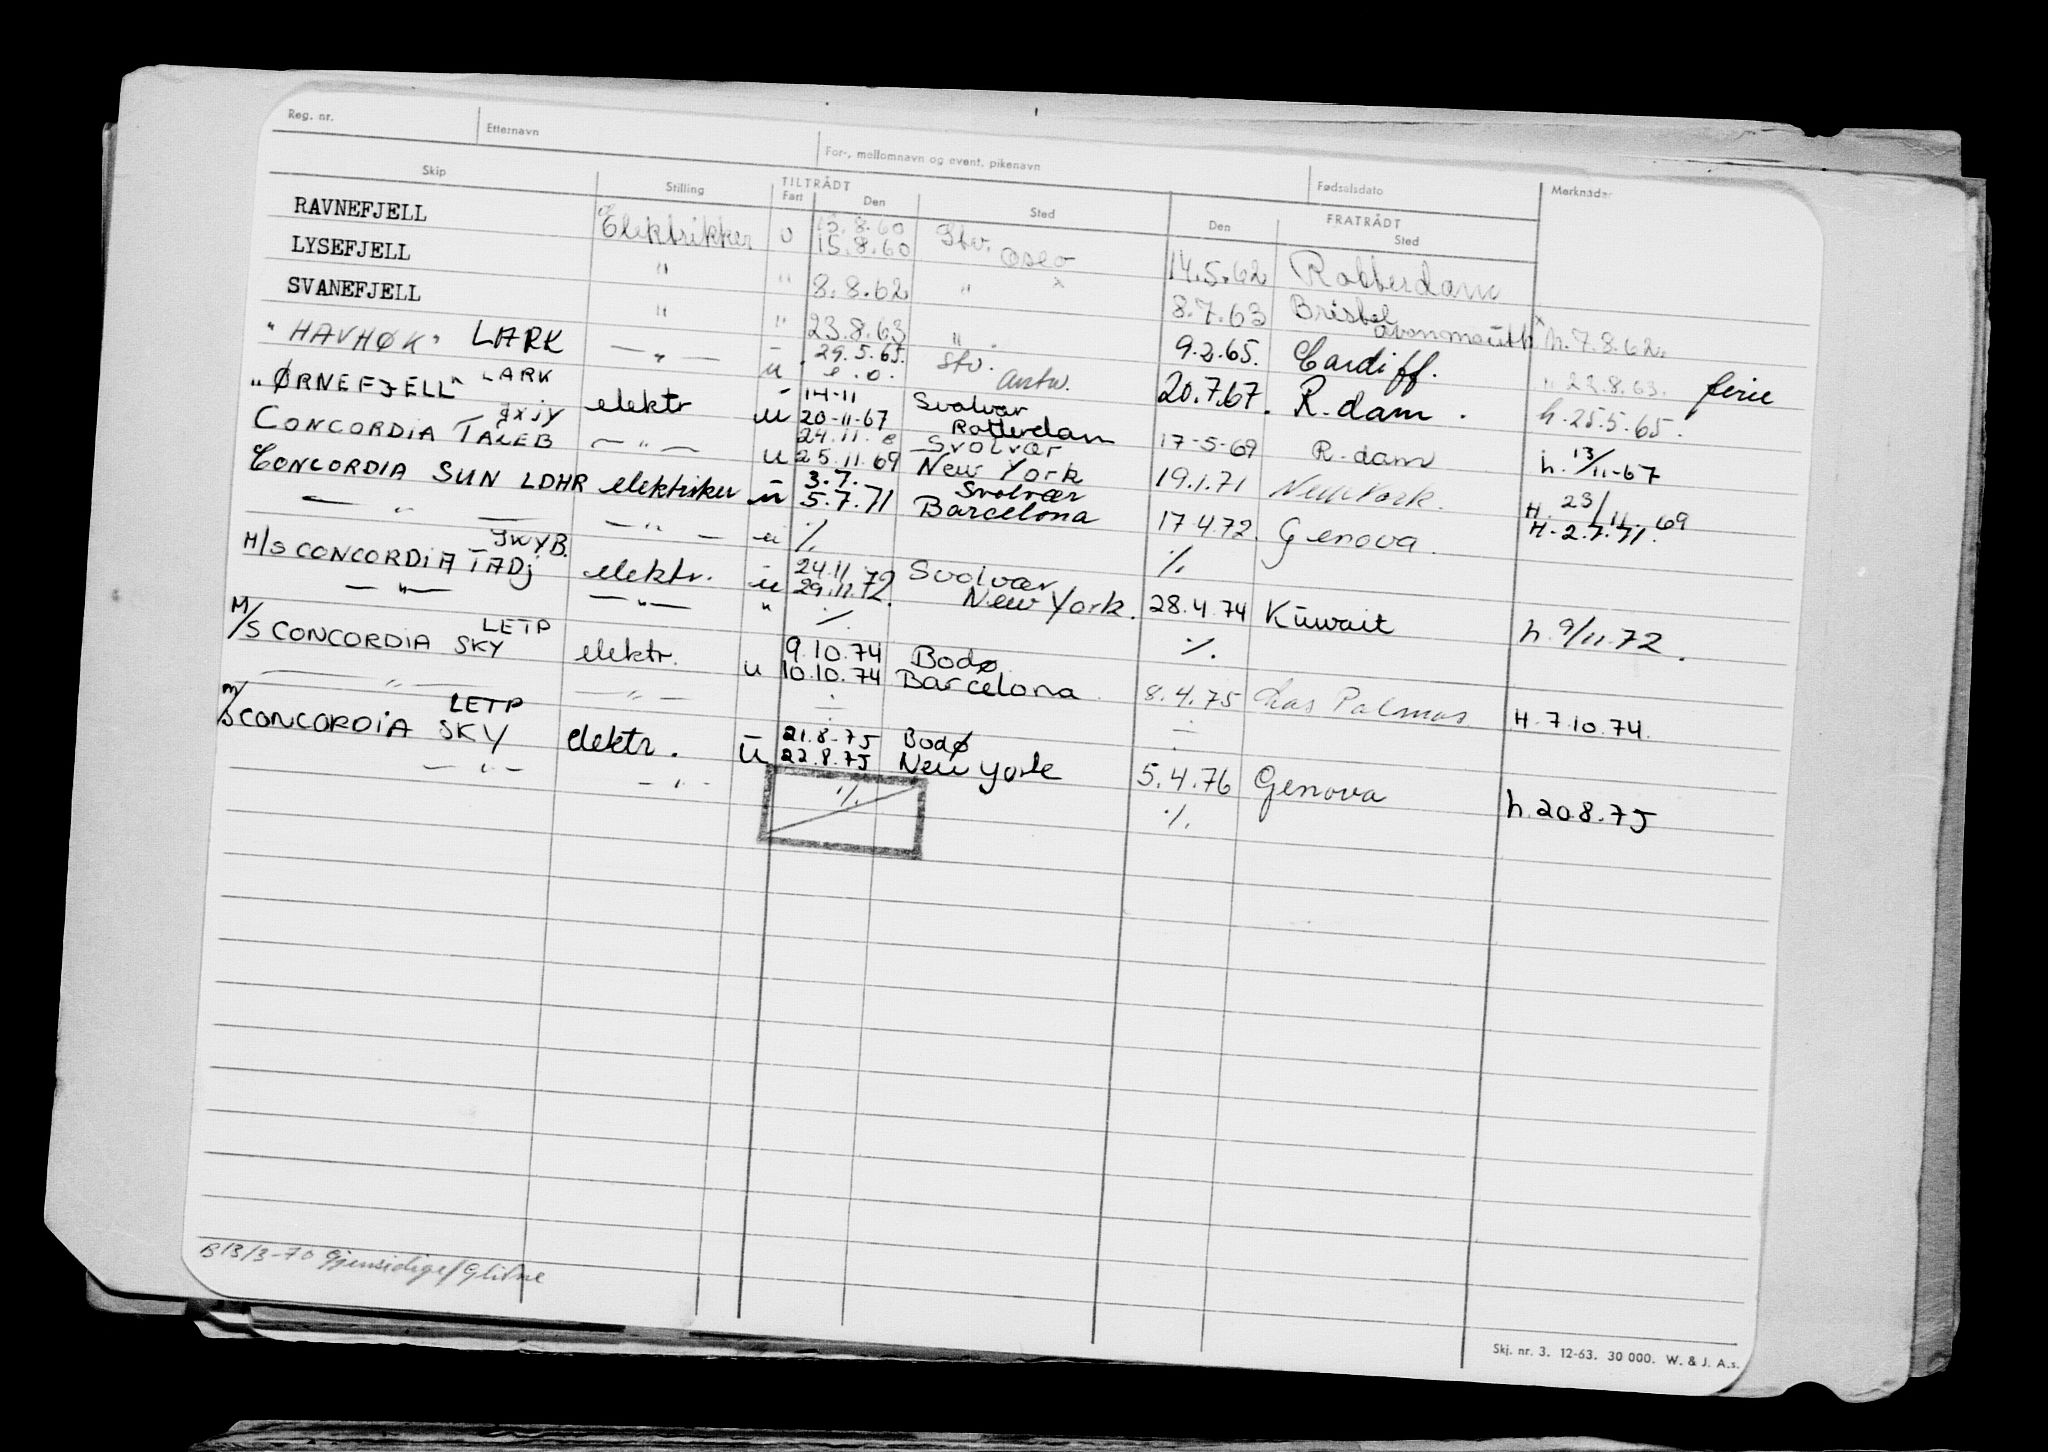 Reg. nr. Etternavn For-, mellomnavn og event. pikenavn Fødselsdato Merknader
Skip Stilling TILTRÅDT FRATRÅDT
Fart Den Sted Den Sted
RAVNEFJELL Elektrikker u 15.8.60 Stv. 14.5.62 Rotterdam
15.8.60 Oslo
LYSEFJELL " " 8.8.62 " x 8.7.63 Bristol x h. 7.8.62.
Avonmouth
SVANEFJELL " " 23.8.63 " 9.2.65. Cardiff. " 22.8.63. ferie
"HAVHØK" LARK — " — u 29.5.65. Stv. 20.7.67. R.dam. h. 25.5.65.
Antw.
"ØRNEFJELL" LARK elektr u 14-11 Svolvær 17-5-69 R.dam h. 13/11-67
20-11-67 Rotterdam
CONCORDIA TALEB JXJY — " — u 24.11. Svolvær 19.1.71 New York. H. 23/11.69
25.11.69 New York
CONCORDIA SUN LDHR elektriker u 3.7. Svolvær 17.4.72. Genova. H. 2.7.71.
5.7.71 Barcelona
— " — — " — u ./. ./.
M/S CONCORDIA TADJ JWYB. elektr. u 24.11 Svolvær 28.4.74 Kuwait h. 9/11.72.
29.11.72. New York.
— " — — " — " ./. ./.
M/S CONCORDIA SKY LETP elektr. u 9.10.74 Bodø 8.4.75 Las Palmas H. 7.10.74.
10.10.74 Barcelona
— " — — " — ÷ ÷
M/S CONCORDIA SKY LETP elektr. u 21.8.75 Bodø 5.4.76 Genova h. 20.8.75
22.8.75 New York
— " — — " — ./. ./.
B 13/3-70 Gjensidige/
Skj. nr. 3. 12-63. 30 000. W. & J. A.s.